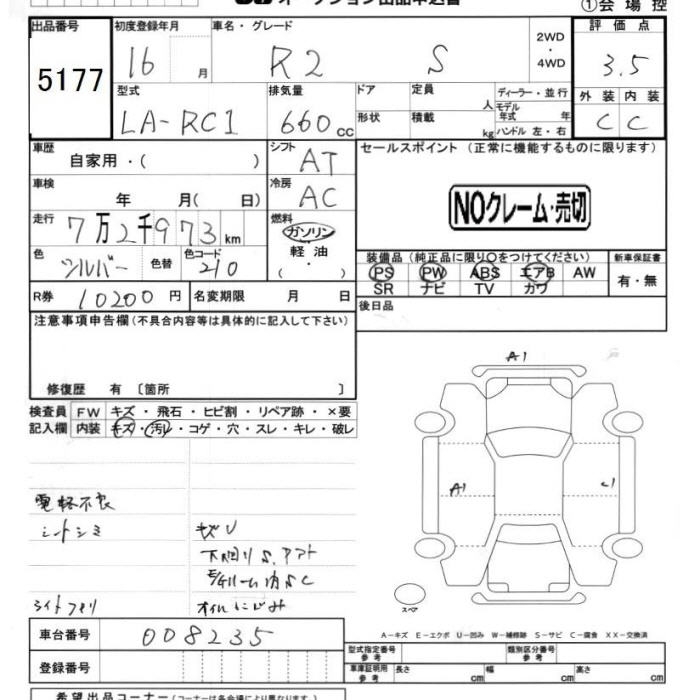 ①会 場 控
出品番号 初度登録年月 車名・グレード 評 価 点
5177 16 月 R2 S 2WD・4WD 3.5
型式 排気量 ドア 定員 人 ディーラー・並行 外 装 内 装
LA-RC1 660cc 形状 積載 kg モデル年式 年 ハンドル 左・右 C C
車歴 自家用・( ) シフト AT セールスポイント (正常に機能するものに限ります)
車検 年 月( 日) 冷房 AC
NOクレーム・売切
走行 7万2千973km 燃料 ガソリン 軽油・( )
色 シルバー 色替 色コード 210 装備品 (純正品に限り○をつけてください) 新車保証書
PS PW ABS エアB AW 有・無
SR ナビ TV カワ
R券 10200円 名変期限 月 日 後日品
注意事項申告欄(不具合内容等は具体的に記入して下さい)
修復歴 有 〔箇所 〕
A1
検査員 FW キズ・飛石・ヒビ割・リペア跡・×要
記入欄 内装 キズ・汚レ・コゲ・穴・スレ・キレ・破レ
A1
電軽不良
シートシミ キズU
下回りS.アフト
ルーム内SC
ライトクモリ オイルにじみ
スペア
車台番号 008235 A-キズ E-エクボ U-凹み W-補修跡 S-サビ C-腐食 XX-交換済
登録番号 型式指定番号 参考 類別区分番号 参考
車庫証明用 参考 長さ cm 幅 cm 高さ cm
希望出品コーナー(コーナーは各会場により異なります)